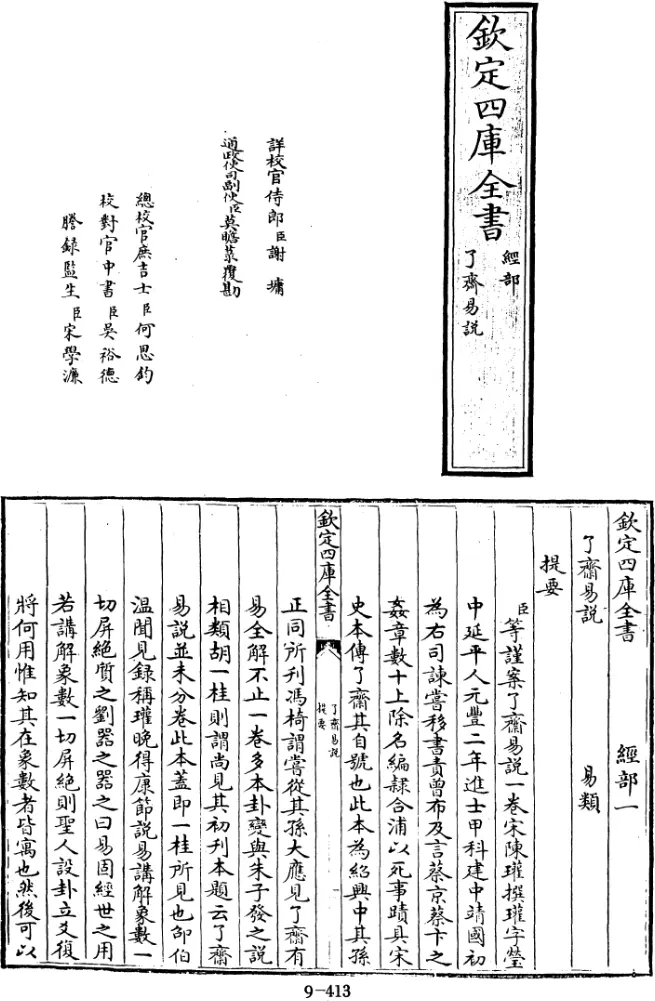 欽定四庫全書
經部
了齋易説
詳校官侍郎臣謝墉
通政使司副使臣莫瞻菉覆勘
總校官庶吉士臣何思鈞
校對官中書臣吳裕德
謄録監生臣宋學濂
欽定四庫全書 經部一
了齋易説 易類
提要
臣等謹案了齋易説一卷宋陳瓘撰瓘字瑩
中延平人元豐二年進士甲科建中靖國初
為右司諫嘗移書責曽布及言蔡京蔡卞之
姦章數十上除名編隷合浦以死事蹟具宋
史本傳了齋其自號也此本為紹興中其孫
欽定四庫全書
了齋易説
提要
正同所刊馮椅謂嘗從其孫大應見了齋有
易全解不止一卷多本卦變與朱子發之説
相類胡一桂則謂尚見其初刊本題云了齋
易説並未分卷此本蓋即一桂所見也邵伯
温聞見録稱瓘晚得康節説易講解象數一
切屏絶質之劉器之器之曰易固經世之用
若講解象數一切屏絶則聖人設卦立爻復
將何用惟知其在象數者皆寓也然後可以
9-413